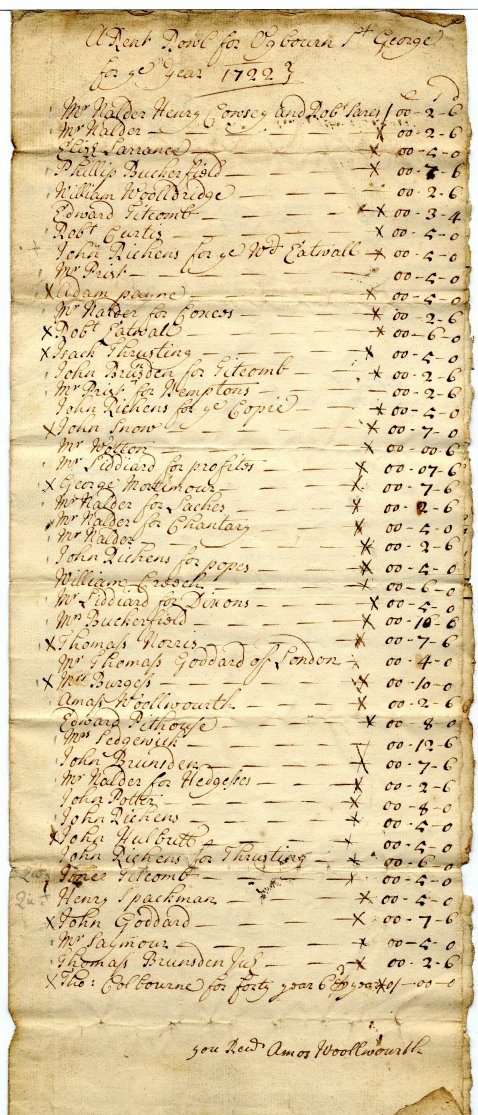 A Rent Rowl for Ogbourn St George
for ye Year 1722
£ s d
Mr Nalder Henry Cowsey and Robt Sares 00-2-6
Mr Nalder x 00-2-6
Eliz Larrance x 00-5-0
Phillip Buckerfield x 00-7-6
William Woolldridge 00-2-6
Edward Titcomb x 00-3-4
Robt Curtis x 00-5-0
John Richens for ye Wd Eatwall x 00-5-0
Mr Prist 00-5-0
x Adam payne x 00-5-0
Mr Nalder for Cones x 00-2-6
x Robt Eatwall x 00-6-0
x Isack Thrusting x 00-5-0
John Brusden for Titcomb x 00-2-6
Mr Prist for Kemptons 00-2-6
John Richens for ye Copie x 00-5-0
x John Snow x 00-7-0
Mr Wotton x 00-00-6
Mr Liddiard for profites x 00-07-6
x George Mortimour x 00-7-6
Mr Nalder for Saches x 00-2-6
Mr Nalder for Chantary x 00-5-0
Mr Nalder x 00-2-6
John Richens for popes x 00-5-0
William Crooch x 00-6-0
Mr Liddiard for Dixons x 00-5-0
Mr Buckerfield x 00-10-6
x Thomass Norris x 00-7-6
Mr Thomass Goddard of London 00-4-0
x Mrs Burgess x 00-10-0
Amass Woollwourth x 00-2-6
Edward Pithouse x 00-8-0
Mrs Sedgewick 00-12-6
John Brunsden x 00-7-6
Mr Nalder for Hedgesses x 00-2-6
John Potter x 00-8-0
John Richens x 00-5-0
x John Hulbutt x 00-5-0
John Richens for Thrusting x 00-6-0
Titcomb x 00-5-0
Henry Spackman x 00-5-0
x John Goddard x 00-7-6
Mr Saymour x 00-5-0
Thomass Brunsden x 00-2-6
x Tho: Colbourne for forty year 6d pr year x 01-00-0
you Amos Woollwourth